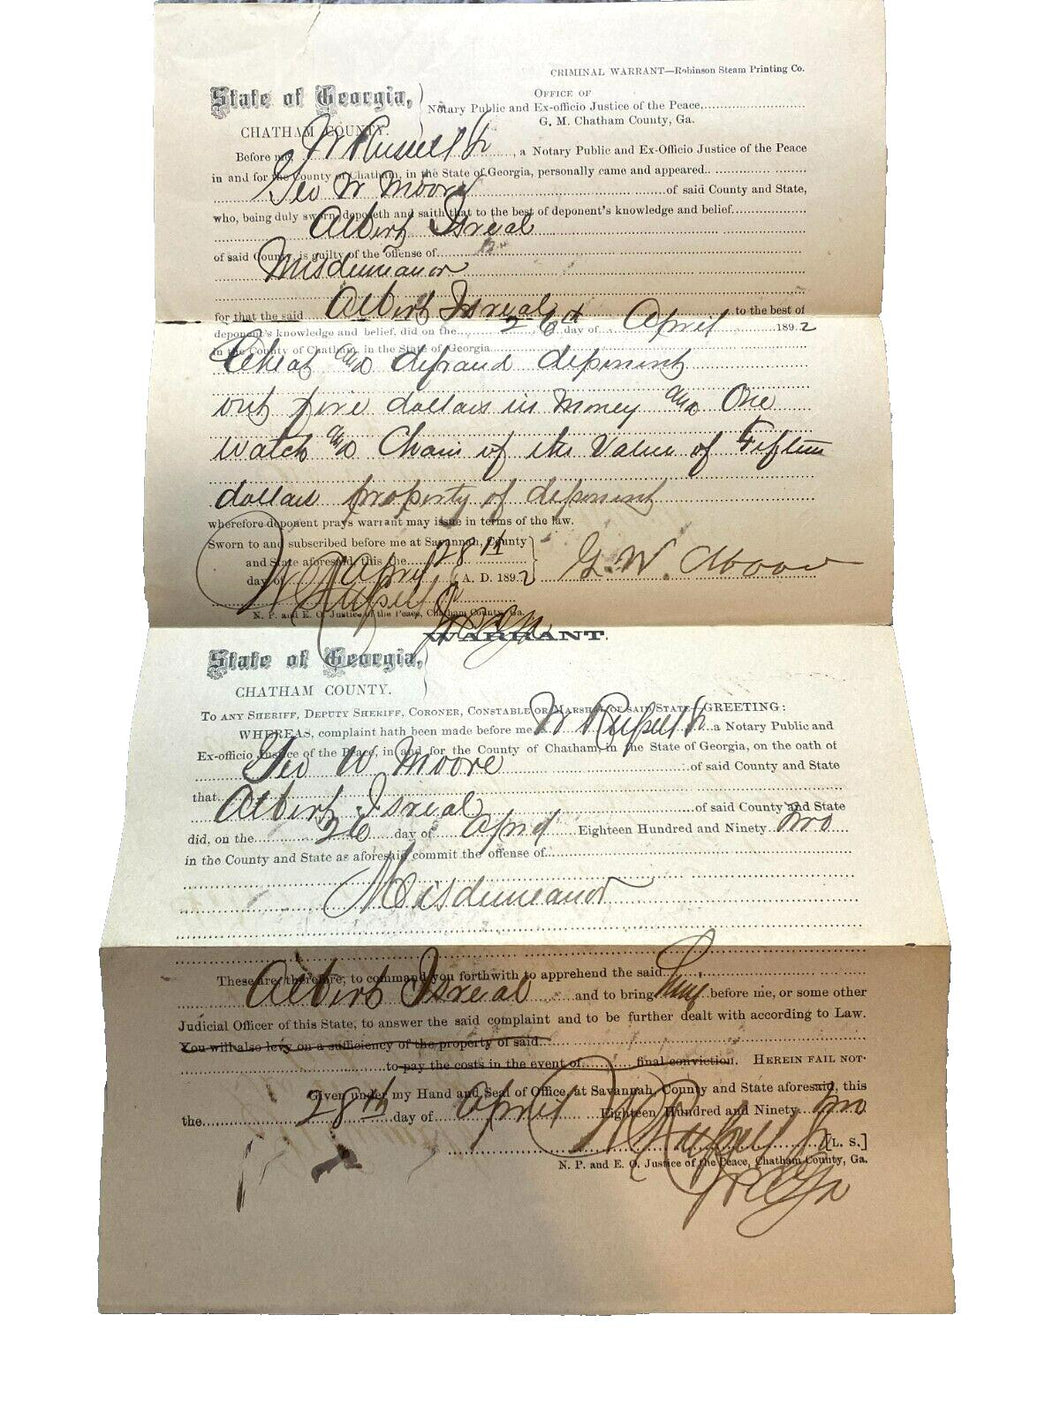 CRIMINAL WARRANT—Robinson Steam Printing Co.
State of Georgia,
CHATHAM COUNTY.
OFFICE OF
Notary Public and Ex-officio Justice of the Peace,
G. M. Chatham County, Ga.
Before me, W Russell Jr, a Notary Public and Ex-Officio Justice of the Peace
in and for the County of Chatham, in the State of Georgia, personally came and appeared
Geo W Moore of said County and State,
who, being duly sworn, deposeth and saith that to the best of deponent's knowledge and belief
Albert Isreal
of said County, is guilty of the offense of
Misdemeanor
for that the said Albert Isreal to the best of
deponent's knowledge and belief, did on the 26th day of April 1892
in the County of Chatham, in the State of Georgia
Cheat and defraud deponent
out five dollars in Money and One
Watch and Chain of the Value of Fifteen
dollars property of deponent
wherefore deponent prays warrant may issue in terms of the law.
Sworn to and subscribed before me at Savannah, County
and State aforesaid, this the 28th
day of April A. D. 1892
G. W. Moore
W Russell Jr
N. P. and E. O. Justice of the Peace, Chatham County, Ga.
WARRANT.
State of Georgia,
CHATHAM COUNTY.
TO ANY SHERIFF, DEPUTY SHERIFF, CORONER, CONSTABLE OR MARSHAL OF SAID STATE—GREETING:
WHEREAS, complaint hath been made before me W Russell Jr a Notary Public and
Ex-officio Justice of the Peace, in and for the County of Chatham, in the State of Georgia, on the oath of
Geo W Moore of said County and State
that Albert Isreal of said County and State
did, on the 26 day of April Eighteen Hundred and Ninety two
in the County and State as aforesaid commit the offense of
Misdemeanor
These are, therefore, to command you forthwith to apprehend the said
Albert Isreal and to bring him before me, or some other
Judicial Officer of this State, to answer the said complaint and to be further dealt with according to Law.
You will also levy on a sufficiency of the property of said
to pay the costs in the event of final conviction. HEREIN FAIL NOT.
Given under my Hand and Seal of Office, at Savannah, County and State aforesaid, this
the 28th day of April Eighteen Hundred and Ninety two
W Russell Jr [L. S.]
N. P. and E. O. Justice of the Peace, Chatham County, Ga.